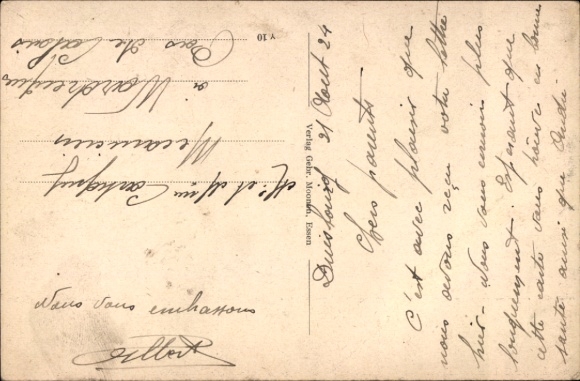 Duisburg 21 Aout 24
Chers parents
C'est avec plaisir que
nous avons reçu votre lettre
hier. Nous vous envoie plus
longuement. Esperant que
cette carte vous trouve en bonne
santé ainsi que André.
Nous vous embrassons
Albert
Verlag Gebr. Moonen, Essen
Mr et Mme
Mecanicien
à Wardrecques
Pas de Calais
V 10